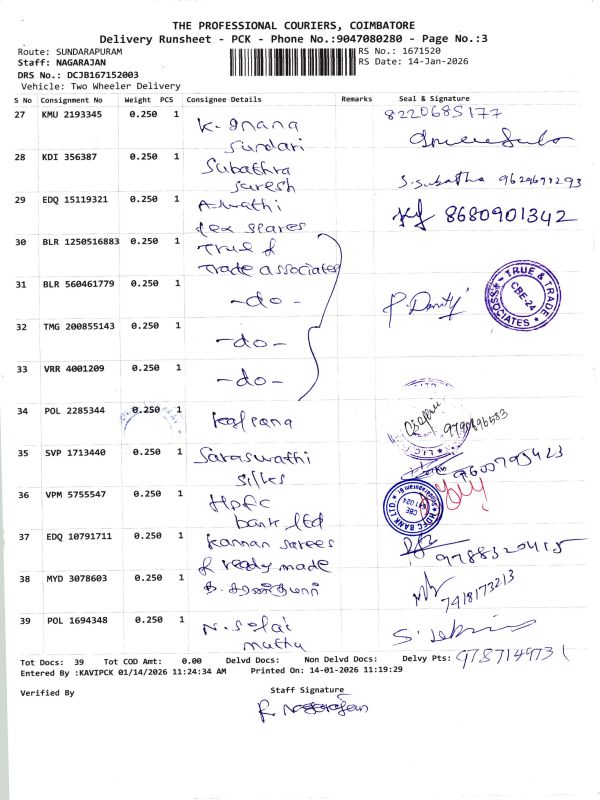 THE PROFESSIONAL COURIERS, COIMBATORE
Delivery Runsheet - PCK - Phone No.:9047080280 - Page No.:3
Route: SUNDARAPURAM
RS No.: 1671520
Staff: NAGARAJAN
RS Date: 14-Jan-2026
DRS No.: DCJB167152003
Vehicle: Two Wheeler Delivery
S No Consignment No Weight PCS Consignee Details Remarks Seal & Signature
27 KMU 2193345 0.250 1 K. Gnana Sundari 8220685177
28 KDI 356387 0.250 1 Subathra Suresh S. Subatha 9629691293
29 EDQ 15119321 0.250 1 Aswathi tex spares 8680901342
30 BLR 1250516883 0.250 1 True & Trade associates
31 BLR 560461779 0.250 1 -do- TRUE & TRADE ASSOCIATES CBE-24
32 TMG 200855143 0.250 1 -do-
33 VRR 4001209 0.250 1 -do-
34 POL 2285344 0.250 1 Kalpana 9790896583
35 SVP 1713440 0.250 1 Saraswathi Silks 9600795423
36 VPM 5755547 0.250 1 Hdfc bank ltd HDFC BANK LTD CBE
37 EDQ 10791711 0.250 1 Kannan sarees & ready made 9788320415
38 MYD 3078603 0.250 1 7418173213
39 POL 1694348 0.250 1 N. Solai muthu
Tot Docs: 39 Tot COD Amt: 0.00 Delvd Docs: Non Delvd Docs: Delvy Pts: 9787149731
Entered By :KAVIPCK 01/14/2026 11:24:34 AM Printed On: 14-01-2026 11:19:29
Verified By
Staff Signature
R. Nagarajan